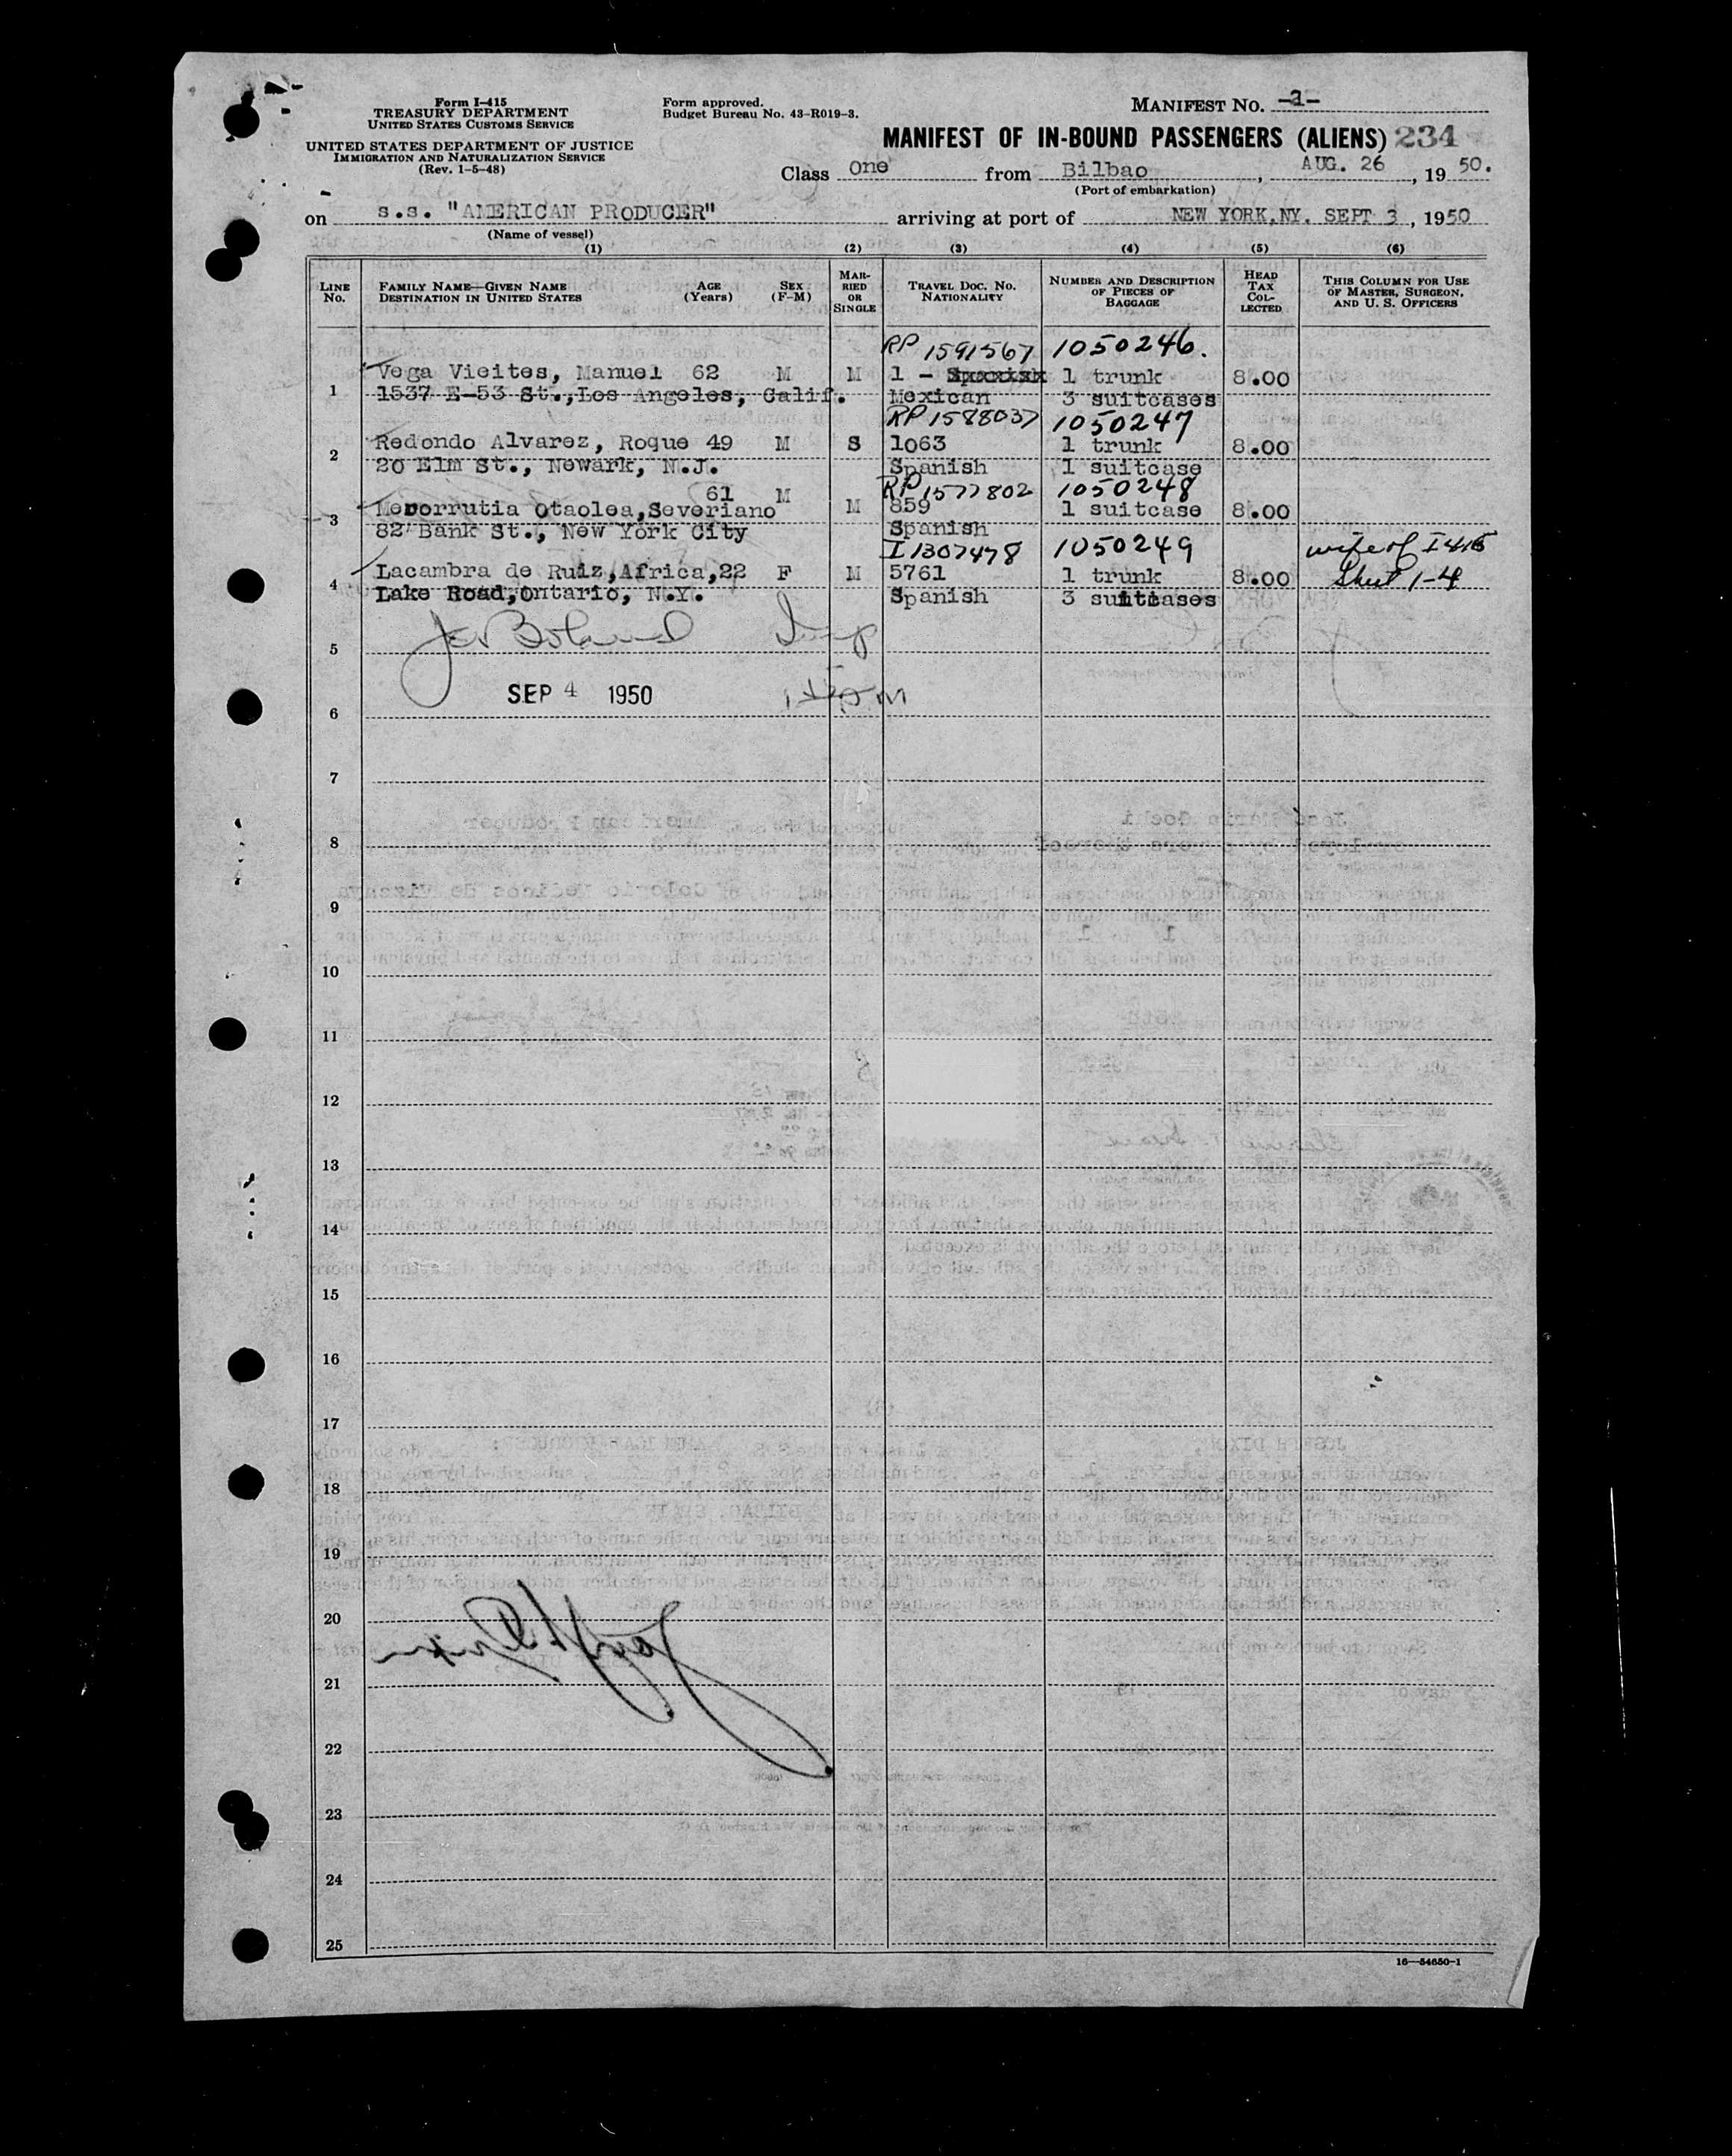 Form I-415
TREASURY DEPARTMENT
UNITED STATES CUSTOMS SERVICE
UNITED STATES DEPARTMENT OF JUSTICE
IMMIGRATION AND NATURALIZATION SERVICE
(Rev. 1-5-48)
Form approved.
Budget Bureau No. 43-R019-3.
MANIFEST NO. -2-
MANIFEST OF IN-BOUND PASSENGERS (ALIENS) 234
Class One from Bilbao, AUG. 26, 1950.
(Port of embarkation)
on s.s. "AMERICAN PRODUCER" arriving at port of NEW YORK,NY. SEPT 3, 1950
(Name of vessel)
(1) (2) (3) (4) (5) (6)
LINE No. FAMILY NAME—GIVEN NAME DESTINATION IN UNITED STATES AGE (Years) SEX (F-M) MARRIED OR SINGLE TRAVEL DOC. NO. NATIONALITY NUMBER AND DESCRIPTION OF PIECES OF BAGGAGE HEAD TAX COLLECTED THIS COLUMN FOR USE OF MASTER, SURGEON, AND U. S. OFFICERS
RP 1591567 1050246.
Vega Vieites, Manuel 62 M M 1 - Spanish 1 trunk 8.00
1 1537 E-53 St.,Los Angeles, Calif. Mexican 3 suitcases
RP 1588037 1050247
Redondo Alvarez, Roque 49 M S 1063 1 trunk 8.00
2 20 Elm St., Newark, N.J. Spanish 1 suitcase
61 M RP 1577802 1050248
Otaolea,Severiano M 859 1 suitcase 8.00
3 82 Bank St., New York City Spanish
I 1307478 1050249 wife of I 415
Lacambra de Ruiz,Africa,22 F M 5761 1 trunk 8.00 Sheet 1-4
4 Lake Road,Ontario, N.Y. Spanish 3 suitcases
5
SEP 4 1950
6
7
8
9
10
11
12
13
14
15
16
17
18
19
20
21
22
23
24
25
16—54650-1